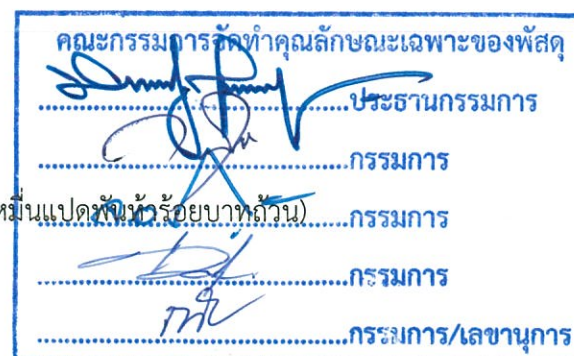 คณะกรรมการจัดทำคุณลักษณะเฉพาะของพัสดุ
ประธานกรรมการ
กรรมการ
หมื่นแปดพันห้าร้อยบาทถ้วน) กรรมการ
กรรมการ
กรรมการ/เลขานุการ